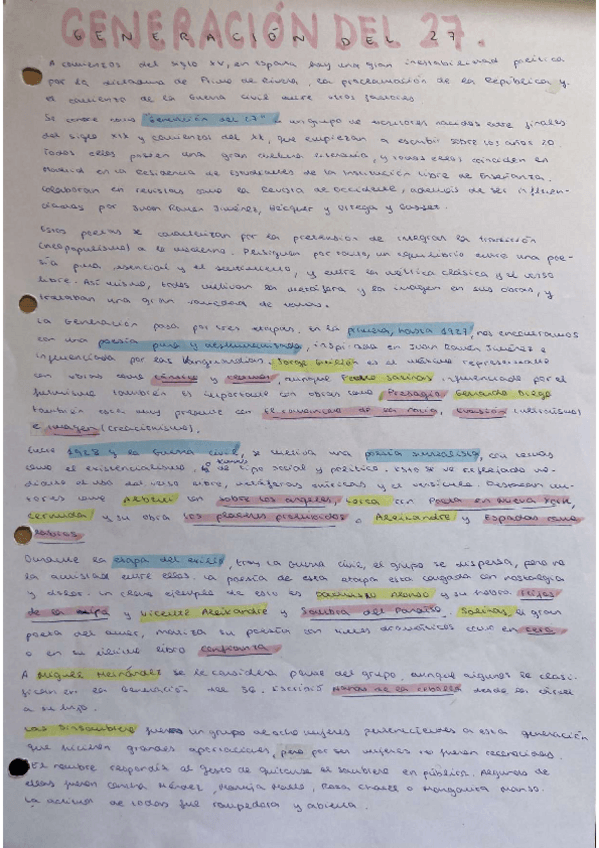 GENERACIÓN DEL 27.
GENERACIÓN DEL 27
A comienzos del siglo XV, en España hay una gran inestabilidad política
por la dictadura de Primo de Rivera, la proclamación de la República y
el comienzo de la Guerra Civil entre otros factores.
Se conoce como "Generación del 27" a un grupo de escritores nacidos entre finales
del siglo XIX y comienzos del XX, que empiezan a escribir sobre los años 20.
Todos ellos poseen una gran cultura literaria, y todos ellos coinciden en
Madrid en la Residencia de Estudiantes de la Institución Libre de Enseñanza.
Colaboran en revistas como la Revista de Occidente, además de ser influen-
ciados por Juan Ramón Jiménez, Bécquer y Ortega y Gasset.
Estos poetas se caracterizan por la pretensión de integrar la tradición
(neopopulismo) a lo moderno. Persiguen por tanto, un equilibrio entre una poe-
sía pura, esencial y el sentimiento, y entre la métrica clásica y el verso
libre. Así mismo, todos cultivan la metáfora y la imagen en sus obras, y
trataban una gran variedad de temas.
La Generación pasa por tres etapas. En la primera, hasta 1927, nos encontramos
con una poesía pura y deshumanizada, inspirada en Juan Ramón Jiménez e
influenciada por las Vanguardias. Jorge Guillén es el máximo representante
con obras como Cántico y Clamor, aunque Pedro Salinas influenciado por el
futurismo también es importante con obras como Presagio. Gerardo Diego
también está muy presente con El romancero de la novia, Evasión (ultraísmo)
e Imagen (creacionismo).
Entre 1928 y la Guerra Civil, se cultiva una poesía surrealista, con temas
como el existencialismo, y de tipo social y político. Esto se ve reflejado me-
diante el uso del verso libre, metáforas oníricas y el versículo. Destacan au-
tores como Alberti con Sobre los ángeles, Lorca con Poeta en Nueva York,
Cernuda y su obra Los placeres prohibidos o Aleixandre y Espadas como
labios.
Durante la etapa del exilio, tras la Guerra Civil, el grupo se dispersa, pero no
la amistad entre ellos. La poesía de esta etapa está cargada con nostalgia
y dolor. Un claro ejemplo de esto es Dámaso Alonso y su obra Hijos
de la ira y Vicente Aleixandre y Sombra del Paraíso. Salinas, el gran
poeta del amor, matiza su poesía con tintes dramáticos como en Cero
o en su último libro Confianza.
A Miguel Hernández se le considera parte del grupo, aunque algunos le clasi-
fican en la Generación del 36. Escribió Nanas de la cebolla desde la cárcel
a su hijo.
Las Sinsombrero fueron un grupo de ocho mujeres pertenecientes a esta generación
que hicieron grandes aportaciones, pero por ser mujeres no fueron reconocidas.
El nombre respondía al gesto de quitarse el sombrero en público. Algunas de
ellas fueron Concha Méndez, Maruja Mallo, Rosa Chacel o Margarita Manso.
La actitud de todas fue rompedora y abierta.